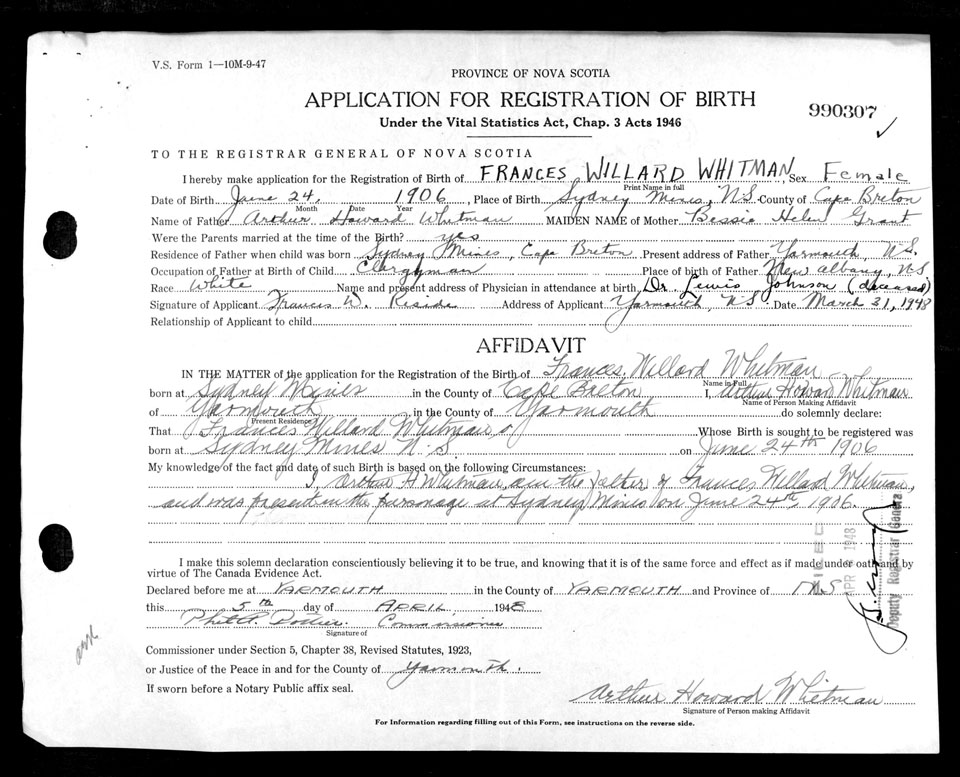 V.S. Form 1—10M-9-47
PROVINCE OF NOVA SCOTIA
APPLICATION FOR REGISTRATION OF BIRTH
990307
Under the Vital Statistics Act, Chap. 3 Acts 1946
TO THE REGISTRAR GENERAL OF NOVA SCOTIA
I hereby make application for the Registration of Birth of FRANCES WILLARD WHITMAN, Sex Female
Print Name in full
Date of Birth June 24, 1906, Place of Birth Sydney Mines, N.S. County of Cape Breton
Month Date Year
Name of Father Arthur Howard Whitman MAIDEN NAME of Mother Bessie Helen Grant
Were the Parents married at the time of the Birth? yes
Residence of Father when child was born Sydney Mines, Cape Breton Present address of Father Yarmouth, N.S.
Occupation of Father at Birth of Child Clergyman Place of birth of Father New Albany, N.S.
Race White Name and present address of Physician in attendance at birth Dr. Lewis Johnson (deceased)
Signature of Applicant Frances W. Reside Address of Applicant Yarmouth, N.S. Date March 31, 1948
Relationship of Applicant to child
AFFIDAVIT
IN THE MATTER of the application for the Registration of the Birth of Frances Willard Whitman
Name in Full
born at Sydney Mines in the County of Cape Breton I, Arthur Howard Whitman
Name of Person Making Affidavit
of Yarmouth in the County of Yarmouth do solemnly declare:
Present Residence
That Frances Willard Whitman Whose Birth is sought to be registered was
born at Sydney Mines N.S. on June 24th 1906
My knowledge of the fact and date of such Birth is based on the following Circumstances:
I, Arthur H Whitman, am the father of Frances Willard Whitman,
and was present in the parsonage at Sydney Mines on June 24th, 1906
I make this solemn declaration conscientiously believing it to be true, and knowing that it is of the same force and effect as if made under oath and by
virtue of The Canada Evidence Act.
Declared before me at YARMOUTH in the County of YARMOUTH and Province of N.S
this 5th day of APRIL, 1948
Commissioner
Signature of
Commissioner under Section 5, Chapter 38, Revised Statutes, 1923,
or Justice of the Peace in and for the County of Yarmouth.
If sworn before a Notary Public affix seal.
Arthur Howard Whitman
Signature of Person making Affidavit
For Information regarding filling out of this Form, see instructions on the reverse side.
Deputy Registrar General